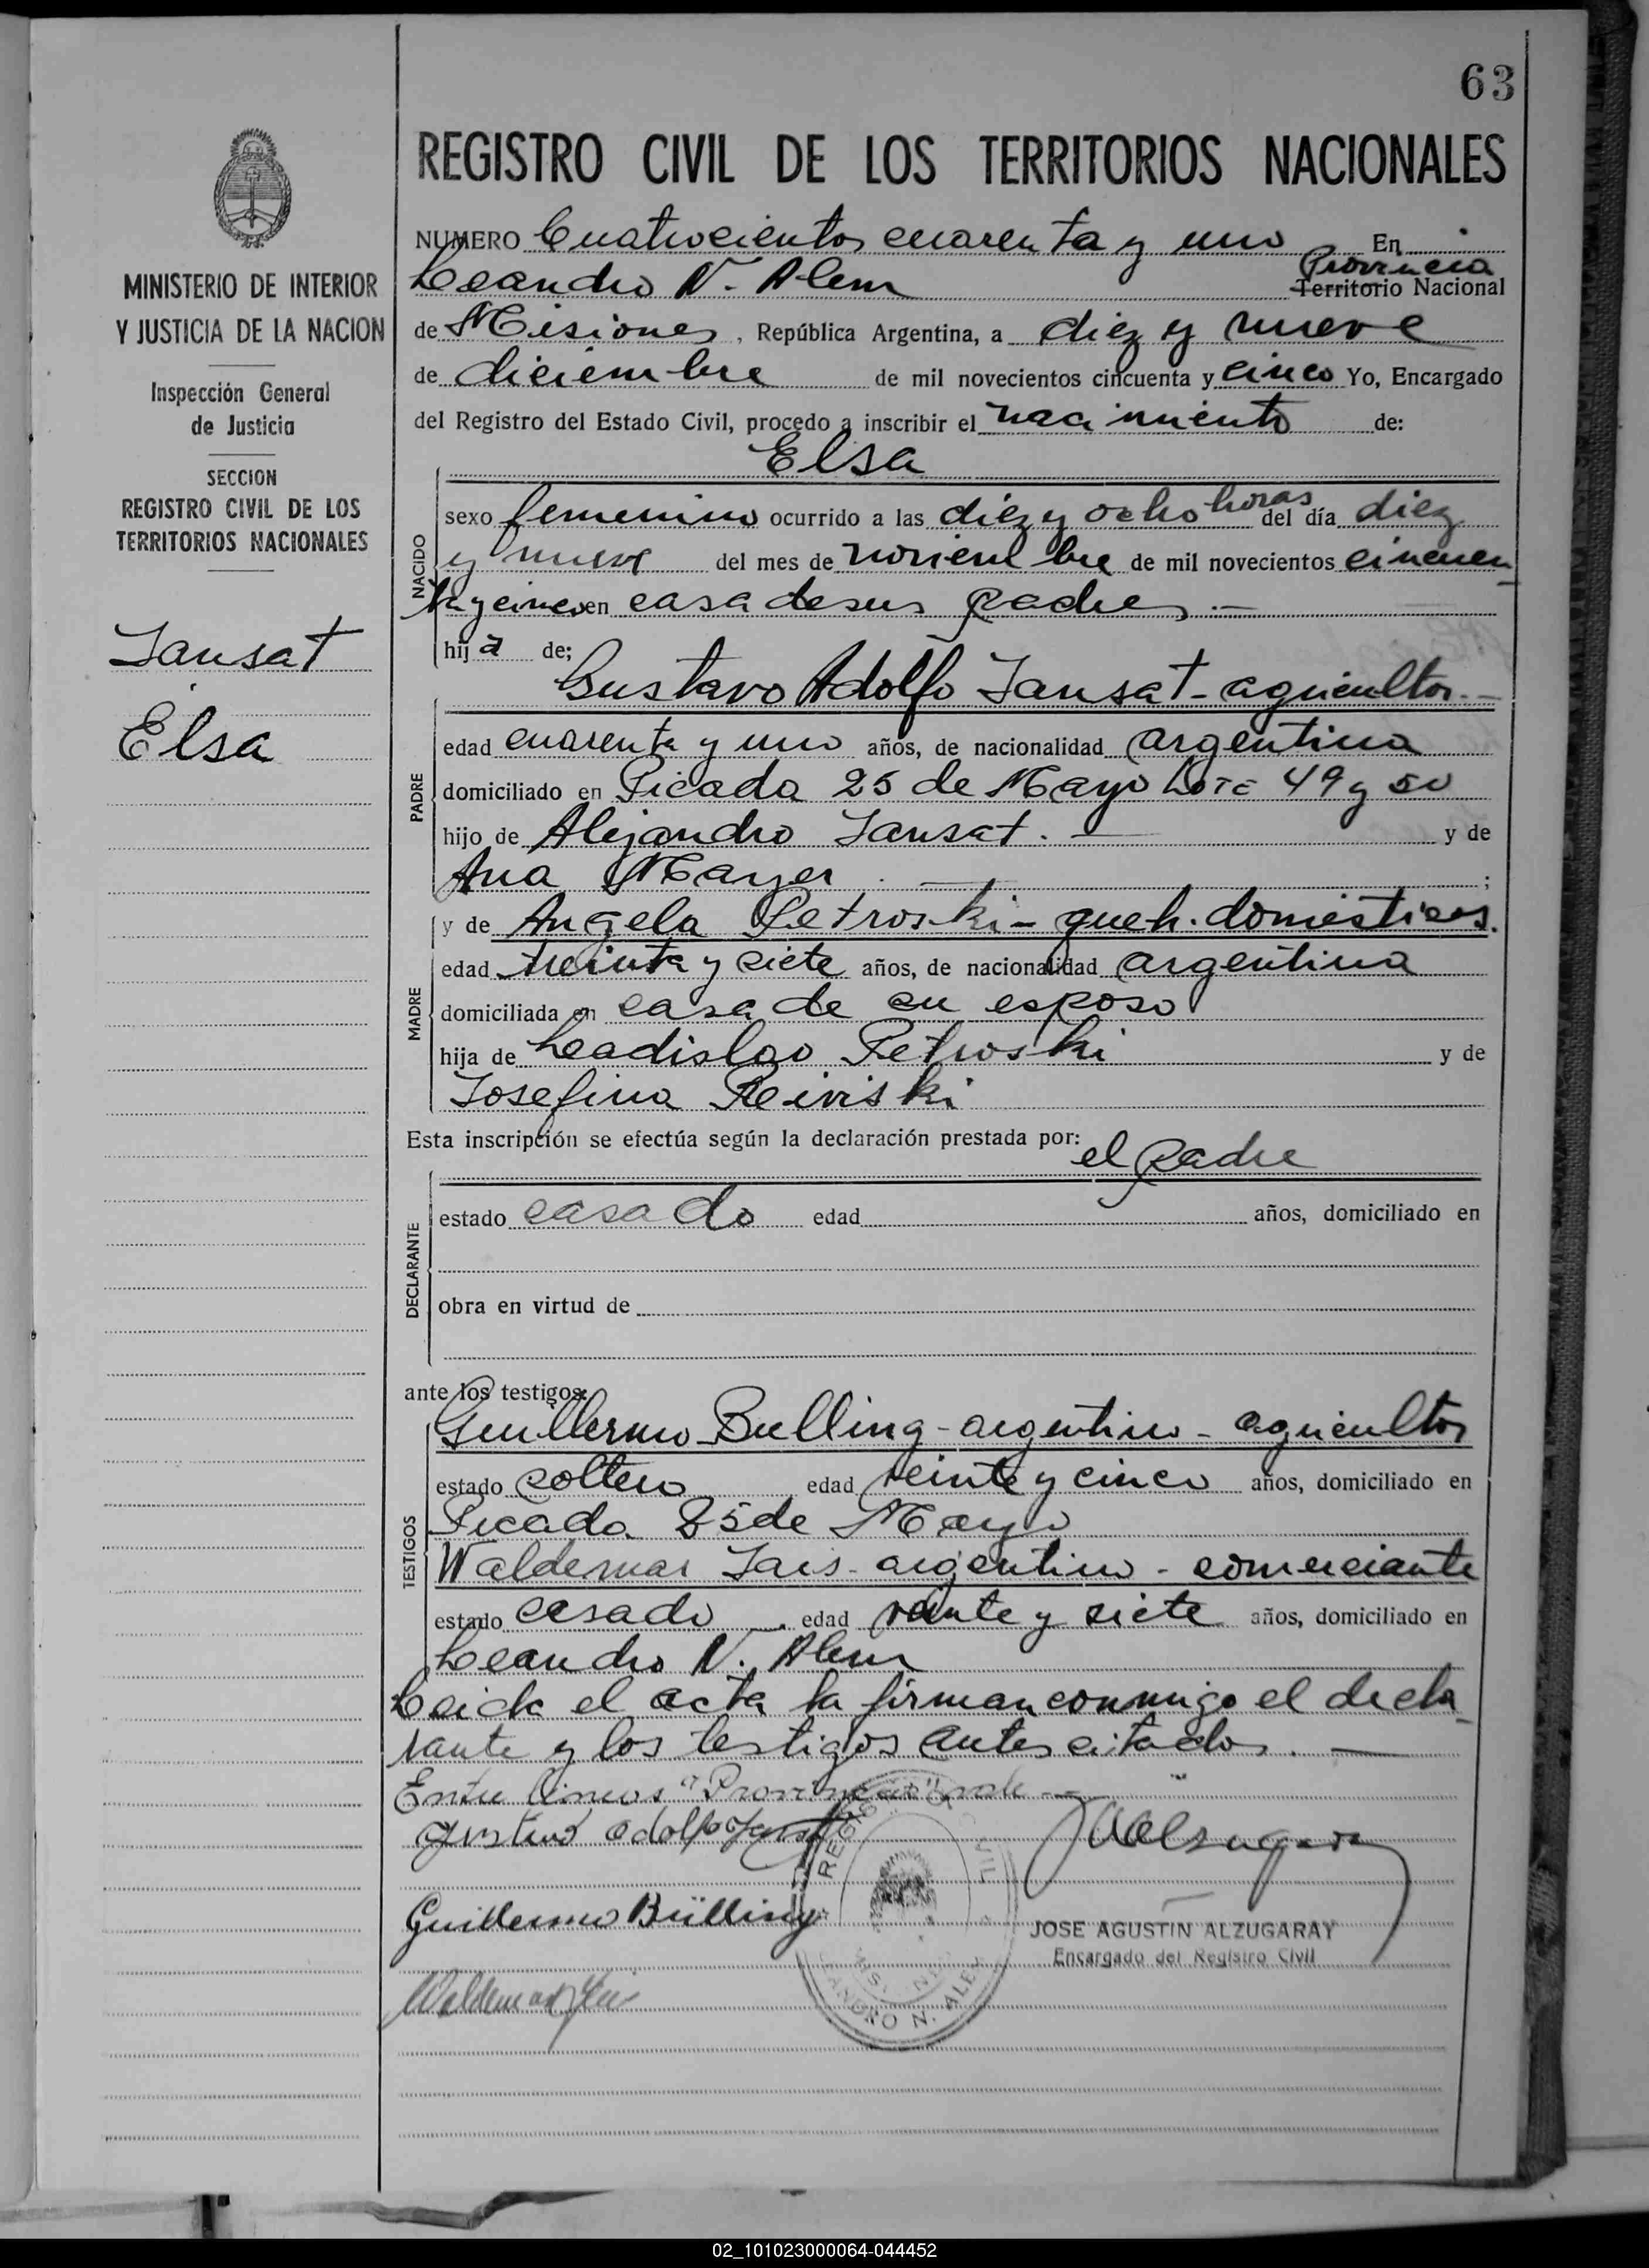 63
REGISTRO CIVIL DE LOS TERRITORIOS NACIONALES
MINISTERIO DE INTERIOR
Y JUSTICIA DE LA NACION
Inspección General
de Justicia
SECCION
REGISTRO CIVIL DE LOS
TERRITORIOS NACIONALES
Jansat
Elsa
NUMERO Cuatrocientos cuarenta y uno En
Provincia
Leandro N. Alem Territorio Nacional
de Misiones, República Argentina, a diez y nueve
de diciembre de mil novecientos cincuenta y cinco Yo, Encargado
del Registro del Estado Civil, procedo a inscribir el nacimiento de:
Elsa
NACIDO
sexo femenino ocurrido a las diez y ocho horas del día diez
y nueve del mes de noviembre de mil novecientos cincuen
ta y cinco en casa de sus padres.-
hija de;
Gustavo Adolfo Jansat - agricultor.-
PADRE
edad cuarenta y uno años, de nacionalidad argentina
domiciliado en Picada 25 de Mayo Lote 49 y 50
hijo de Alejandro Jansat. — y de
Ana Mayer — ;
y de Angela Petroski - queh. domésticos.
MADRE
edad treinta y siete años, de nacionalidad argentina
domiciliada en casa de su esposo
hija de Leadislao Petroski y de
Josefina Reiviski
Esta inscripción se efectúa según la declaración prestada por:
el padre
DECLARANTE
estado casado edad años, domiciliado en
obra en virtud de
ante los testigos:
Guillermo Bulling - argentino - agricultor
TESTIGOS
estado soltero edad veinte y cinco años, domiciliado en
Picada 25 de Mayo
Waldemar Jais - argentino - comerciante
estado casado edad veinte y siete años, domiciliado en
Leandro N. Alem
Leida el acta la firman conmigo el decla
rante y los testigos antes citados. —
Entre lineas "Provincia" vale —
Gustavo Adolfo Jansat
REGISTRO CIVIL
MISIONES
LEANDRO N. ALEM
Guillermo Bülling
JOSE AGUSTIN ALZUGARAY
Encargado del Registro Civil
02_101023000064-044452